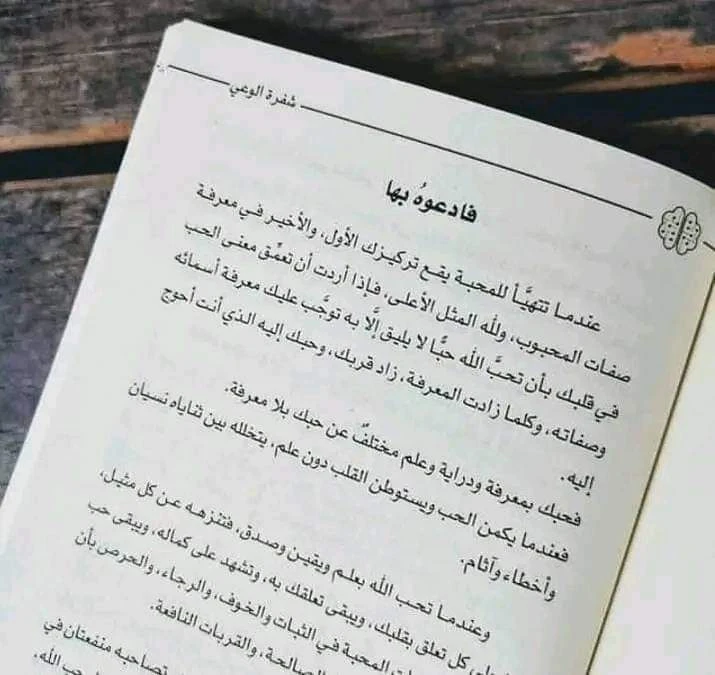 شفرة الوعي
فادعوهُ بها
عندما تتهيَّأ للمحبة يقع تركيزك الأول، والأخير في معرفة
صفات المحبوب، ولله المثل الأعلى، فإذا أردت أن تعمِّق معنى الحب
في قلبك بأن تحبَّ الله حبًّا لا يليق إلَّا به توجَّب عليك معرفة أسمائه
وصفاته، وكلما زادت المعرفة، زاد قربك، وحبك إليه الذي أنت أحوج
إليه.
فحبك بمعرفة ودراية وعلم مختلفٌ عن حبك بلا معرفة.
فعندما يكمن الحب ويستوطن القلب دون علم، يتخلله بين ثناياه نسيان
وأخطاء وآثام.
وعندما تحب الله بعلم ويقين وصدق، فتنزهه عن كل مثيل،
كل تعلق بقلبك، ويبقى تعلقك به، وتشهد على كماله، ويبقى حب
المحبة في الثبات والخوف، والرجاء، والحرص بأن
الصالحة، والقربات النافعة.
تصاحبه منفعتان في
حب الله،